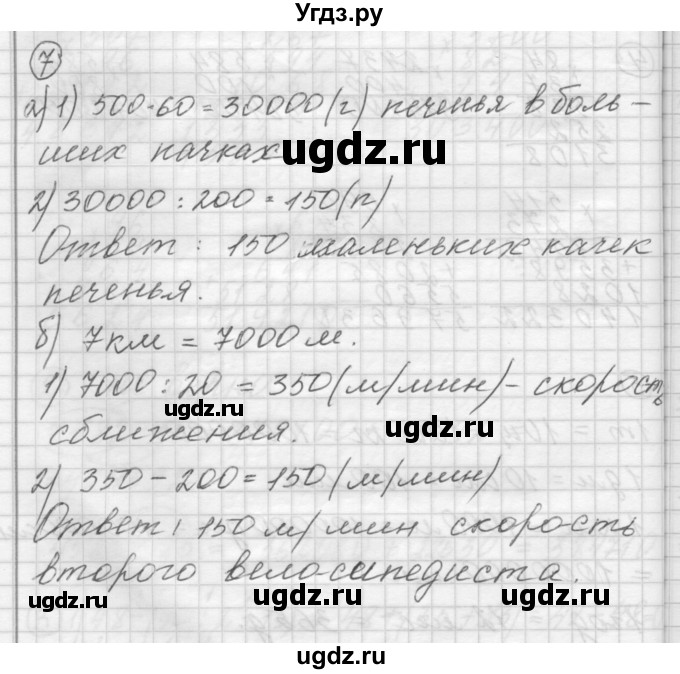 Угдз.ру
7
а) 1) 500·60 = 30000 (г) печенья в боль-
ших пачках
ugdz.ru
2) 30000 : 200 = 150 (п)
Ответ : 150 маленьких качек
печенья.
б) 7 км = 7000 м.
1) 7000 : 20 = 350 (м/мин) - скорость
ugdz.ru
сближения.
ugdz.ru
2) 350 - 200 = 150 (м/мин)
Ответ: 150 м/мин скорость
второго велосипедиста.
ugdz.ru
ugdz.ru
ugdz.ru
ugdz.ru